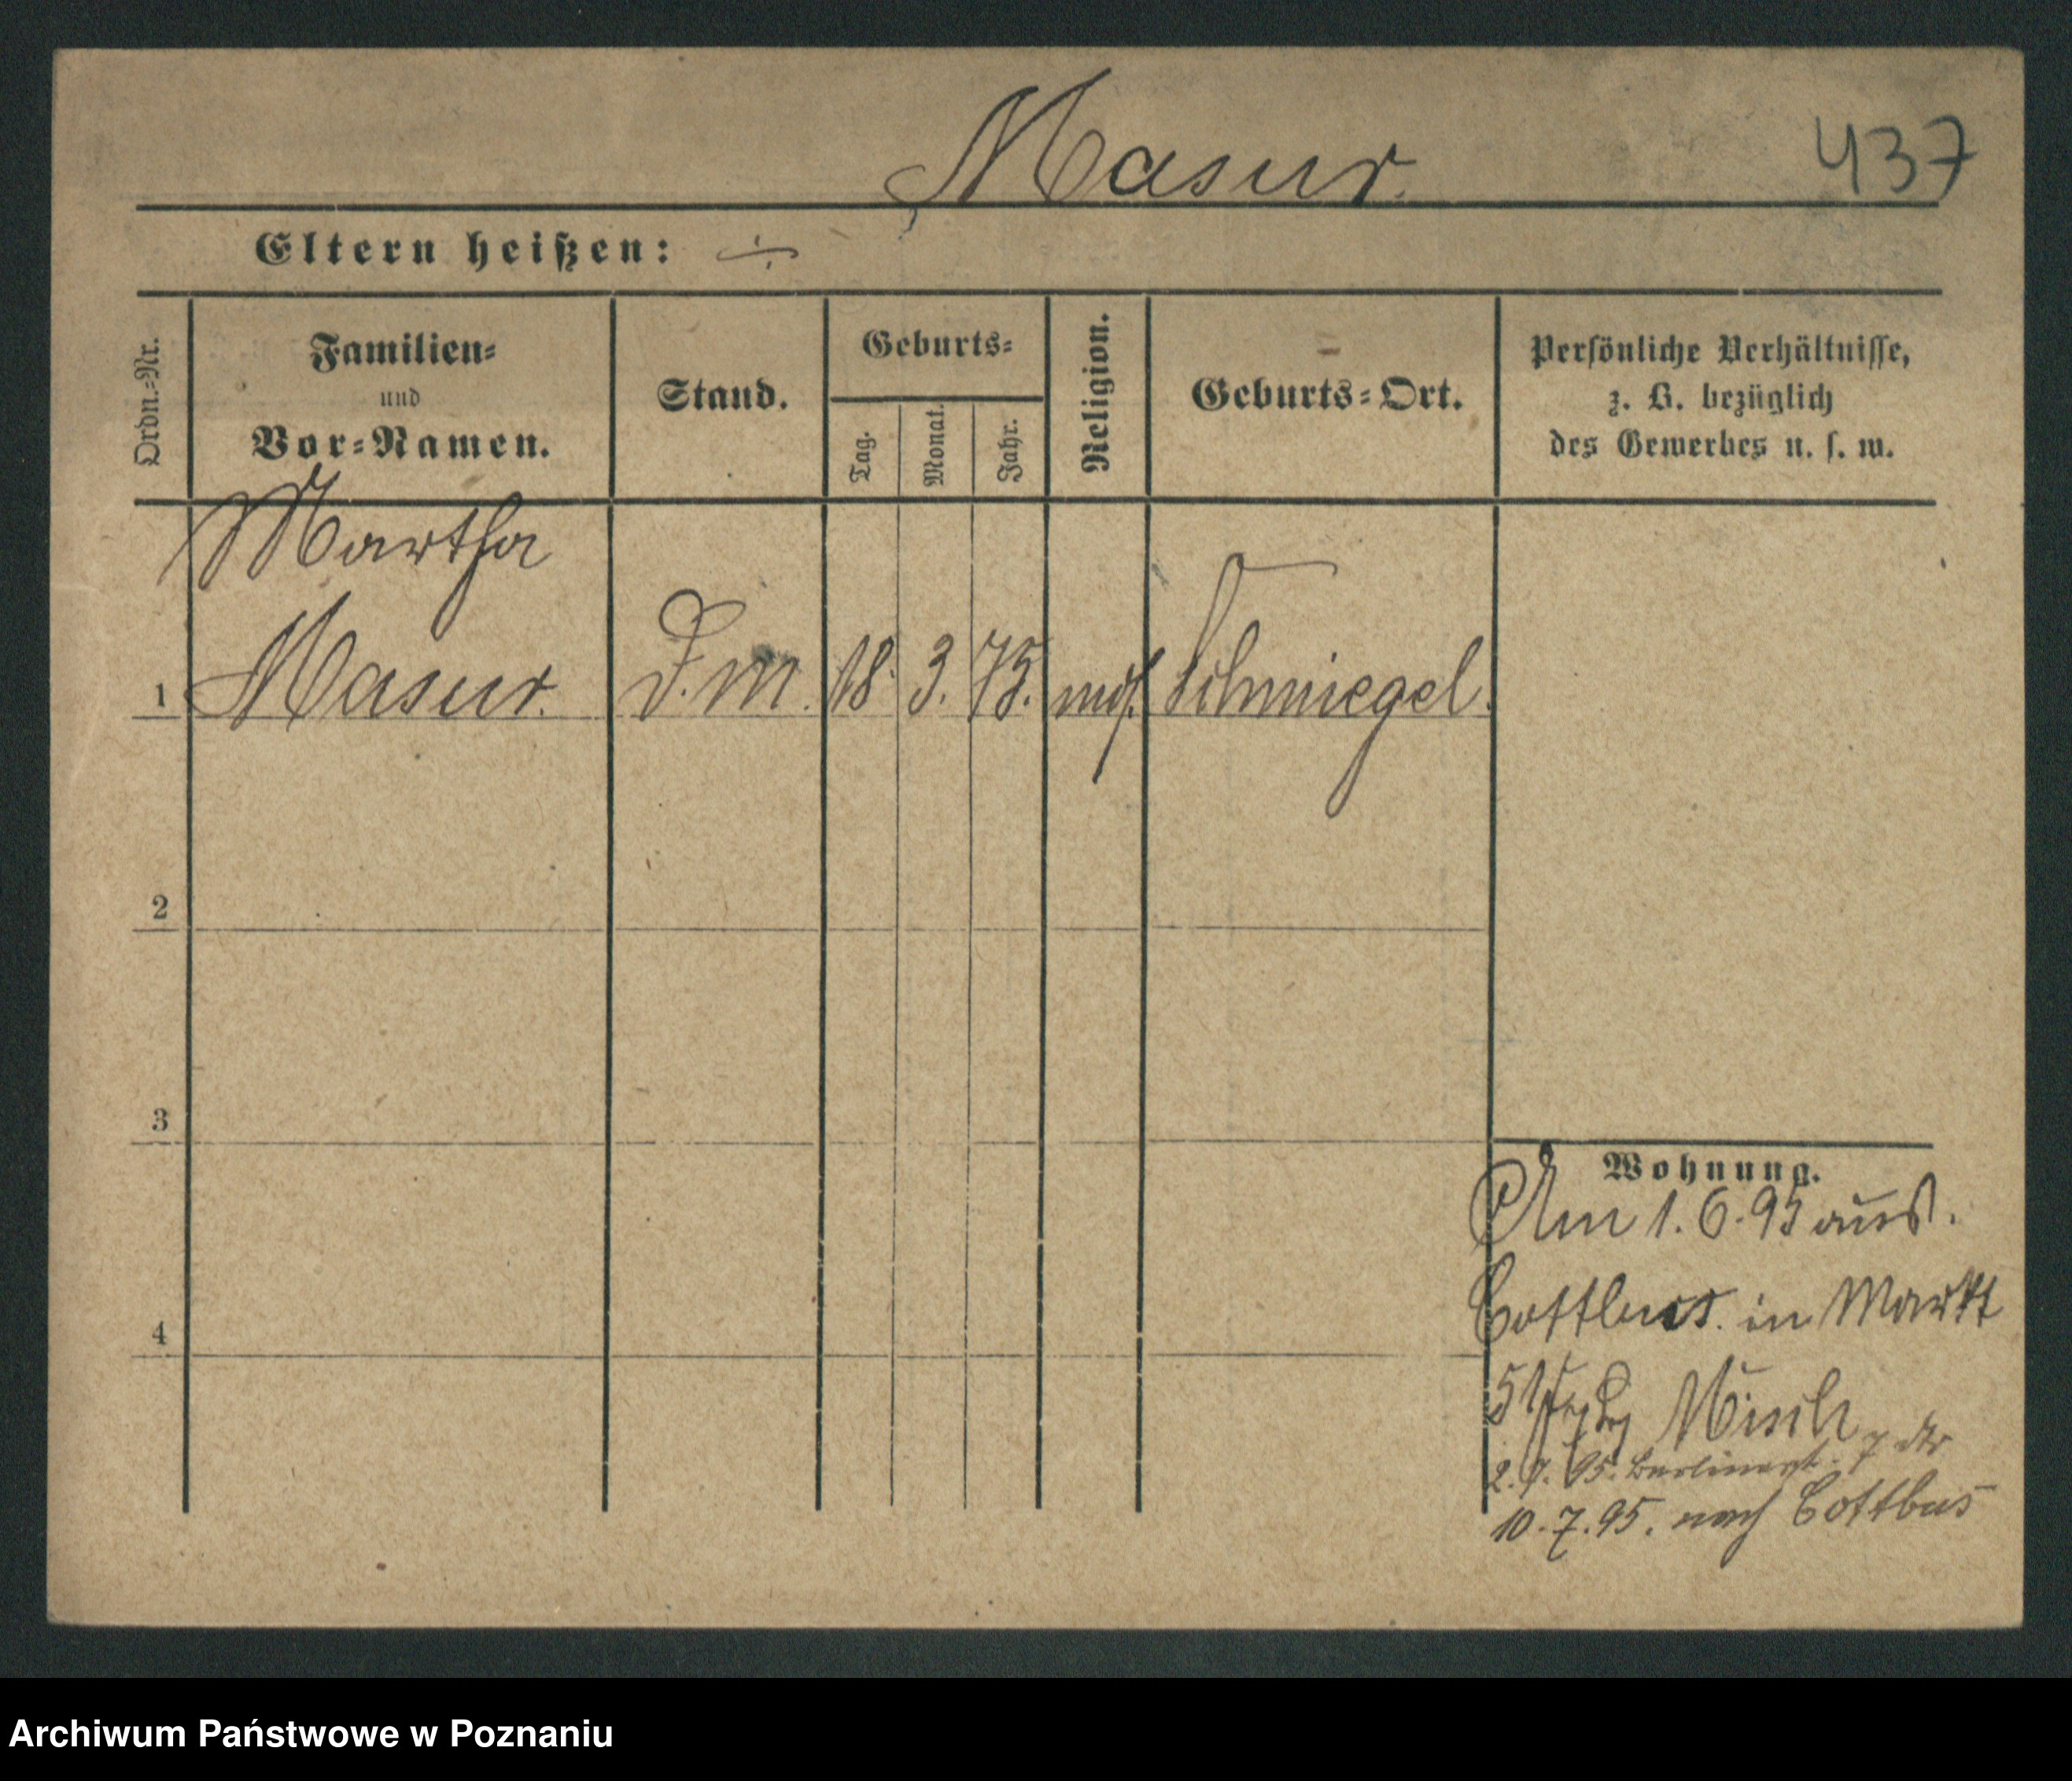 Masur.
437
Eltern heißen: ÷
Ordn.-Nr.
Familien-
und
Vor-Namen.
Stand.
Geburts-
Tag.
Monat.
Jahr.
Religion.
Geburts-Ort.
Persönliche Verhältnisse,
z. B. bezüglich
des Gewerbes u. s. w.
Martha
1 Masur. D.M. 18. 3. 75. Schmiegel.
2
3
4
Wohnung.
Am 1. 6. 95 aus.
Cottbus. in Markt
51 Misch
2. 7. 95. Berlinerst. 7
10. 7. 95. nach Cottbus
Archiwum Państwowe w Poznaniu